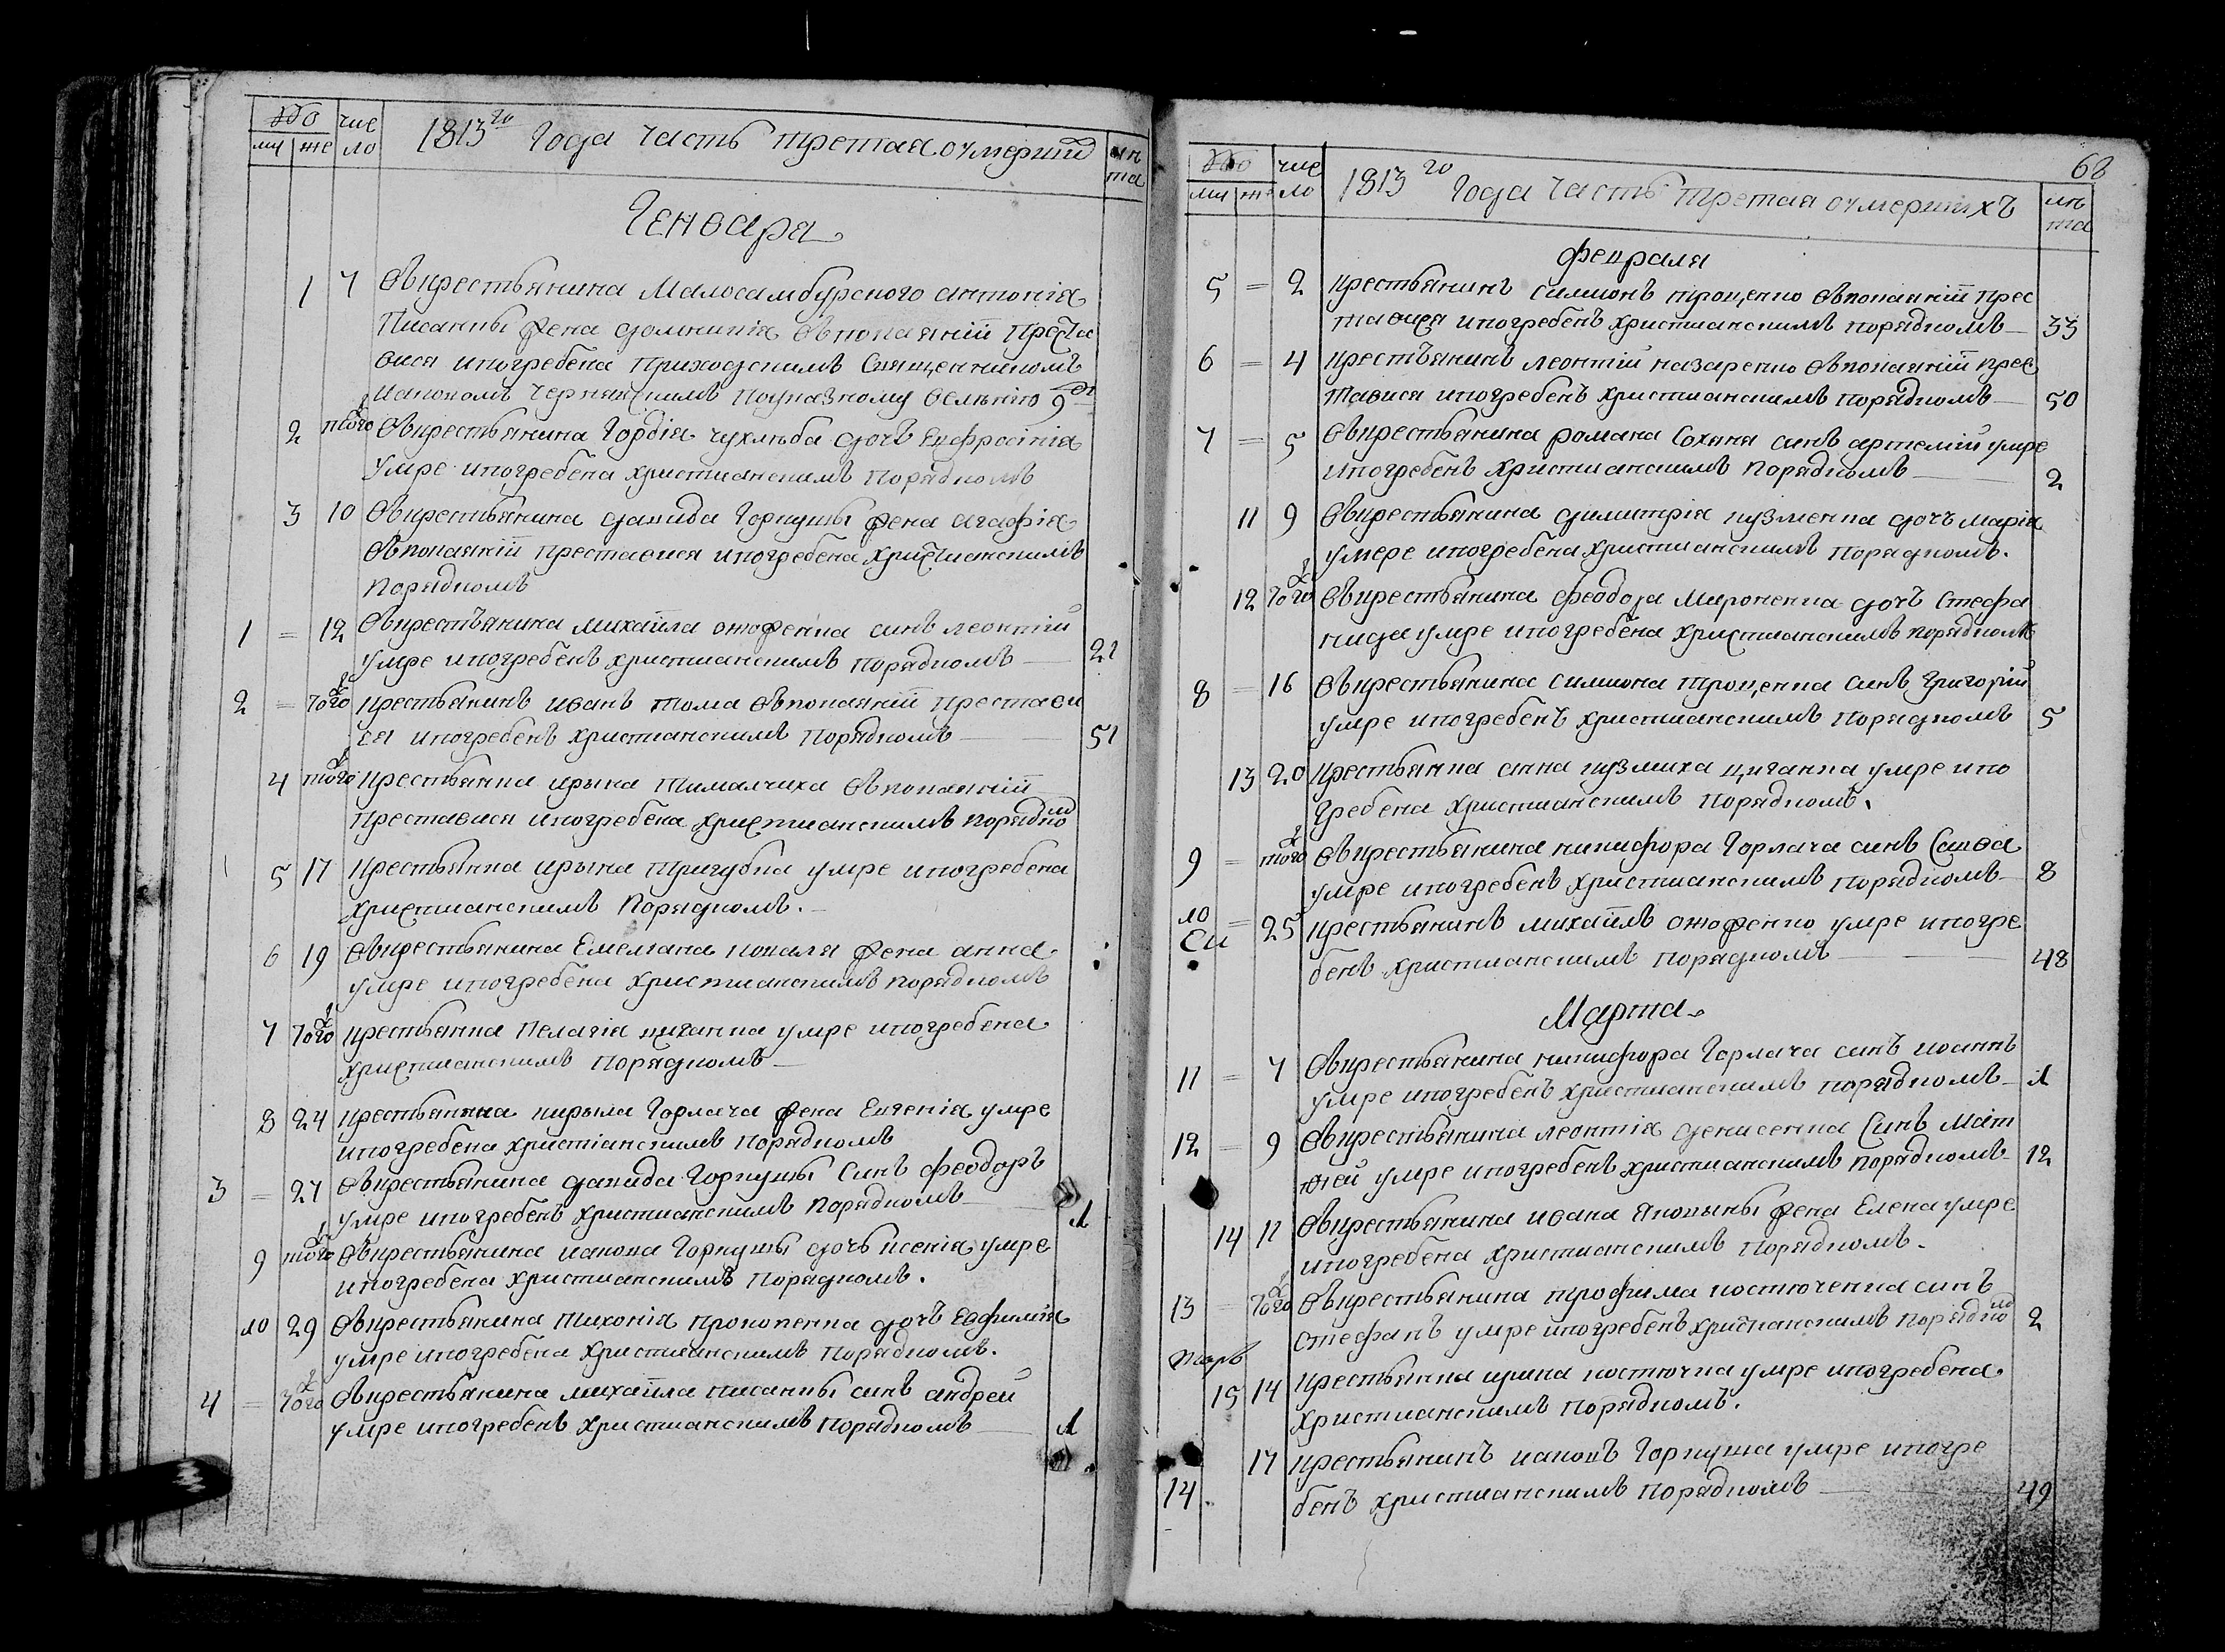 чис
му же ло 1813го Года часть третая о умерших лѣ
та
Генвара
1 7 Ѿ крестьянина Малосамбурского антонія
Писанки жена домникія въ покаяніи преста
вися и погребена приходскимъ Священникомъ
Иаковомъ Чернявскимъ по указному велѣнію 9го
2 того Ѿ крестьянина Гордія чухлѣба дочъ Евфросінія
умре и погребена христианскимъ порядкомъ
3 10 Ѿ крестьянина данида Горкуши жена агафія
въ покаяніи преставися и погребена христианскимъ
порядкомъ
1 = 12 Ѿ крестьянина михаила сынъ леонтій
умре и погребенъ христианскимъ порядкомъ 21
2 = того крестьянинъ иванъ тома въ покаяніи престави
ся и погребенъ христианскимъ порядкомъ 51
4 того крестьянка ирына въ покаяніи
преставися и погребена христианскимъ порядкомъ
5 17 крестьянка ирына тригубка умре и погребена
христианскимъ порядкомъ.
6 19 Ѿ крестьянина Емелиана коваля жена анна
умре и погребена христианскимъ порядкомъ
7 того крестьянка Пелагія циганка умре и погребена
христианскимъ порядкомъ
8 24 крестьянина кирыла Горлача жена Евгенія умре
и погребена христіанскимъ порядкомъ
3 = 27 Ѿ крестьянина данида Горкуши Синъ феодоръ
умре и погребенъ христианскимъ порядкомъ 1
9 того Ѿ крестьянина иакова Горкуши дочъ ксенія умре
и погребена христианскимъ порядкомъ.
10 29 Ѿ крестьянина тихонія прокопенка дочъ Евфимія
умре и погребена христианскимъ порядкомъ.
4 = того Ѿ крестьянина михаила писанки синъ андрей
умре и погребенъ христианскимъ порядкомъ 1
68
чис
му же ло 1813го Года часть третая о умершихъ лѣ
та
Февраля
5 = 2 крестьянинъ симионъ троценко въ покаяніи прес
тавися и погребенъ христианскимъ порядкомъ 33
6 = 4 крестьянинъ леонтій назаренко въ покаяніи прес
тависа и погребенъ христианскимъ порядкомъ 50
7 = 5 Ѿ крестьянина романа Сохана синъ артемій умре
и погребенъ христианскимъ порядкомъ 2
11 9 Ѿ крестьянина димитрія кузменка дочъ марія
умере и погребена христианскимъ порядкомъ.
12 того Ѿ крестьянина феодора Мироненка дочъ стефа
нида умре и погребена христианскимъ порядкомъ
8 = 16 Ѿ крестьянина симиона троценка синъ григорій
умре и погребенъ христианскимъ порядкомъ 5
13 20 крестьянка анна кузмиха циганка умре и по
гребена христианскимъ порядкомъ.
9 = того Ѿ крестьянина никифора Горлача синъ Савва
умре и погребенъ христианскимъ порядкомъ 8
10 = 25 крестьянинъ михаилъ умре и погре
бенъ христианскимъ порядкомъ 48
Марта
11 = 7 Ѿ крестьянина никифора Горлача синъ иоаннъ
умре и погребенъ христианскимъ порядкомъ 1
12 = 9 Ѿ крестьянина леонтія денисенка Синъ Мат
фей умре и погребенъ христианскимъ порядкомъ 12
14 11 Ѿ крестьянина ивана жена Елена умре
и погребена христианскимъ порядкомъ.
13 = того Ѿ крестьянина трофима костюченка синъ
стефанъ умре и погребенъ христианскимъ порядкомъ 2
15 14 крестьянка ирина костючка умре и погребена
христианскимъ порядкомъ.
17 крестьянинъ иаковъ Горкуша умре и погре
14 бенъ христианскимъ порядкомъ 49